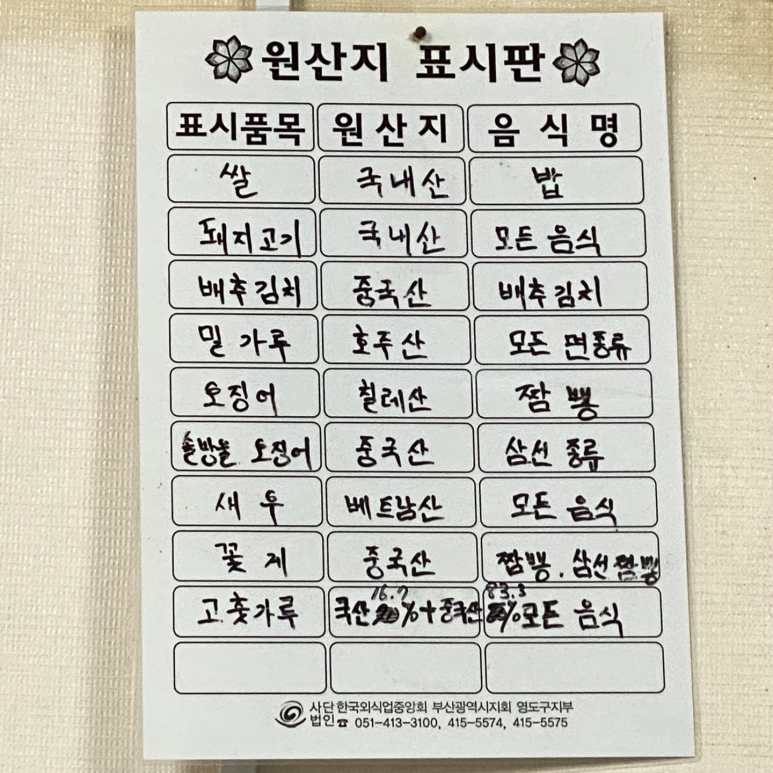 원산지 표시판
표시품목 원산지 음식명
쌀 국내산 밥
돼지고기 국내산 모든 음식
배추김치 중국산 배추김치
밀가루 호주산 모든 면종류
오징어 칠레산 짬뽕
솔방울 오징어 중국산 삼선 종류
새우 베트남산 모든 음식
꽃게 중국산 짬뽕. 삼선짬뽕
고춧가루 국산 16.7%+중국산 83.3% 모든 음식
사단법인 한국외식업중앙회 부산광역시지회 영도구지부
☎ 051-413-3100, 415-5574, 415-5575